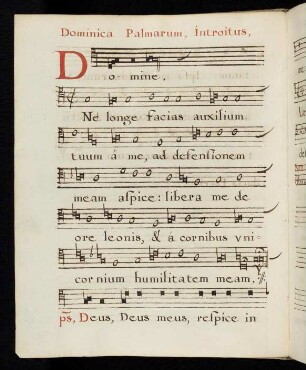 Dominica Palmarum, Introitus,
Domine,
Ne longe facias auxilium
tuum á me, ad defensionem
meam aſpice: libera me de
ore leonis, & á cornibus vni-
cornium humilitatem meam.
ps̄, Deus, Deus meus, reſpice in